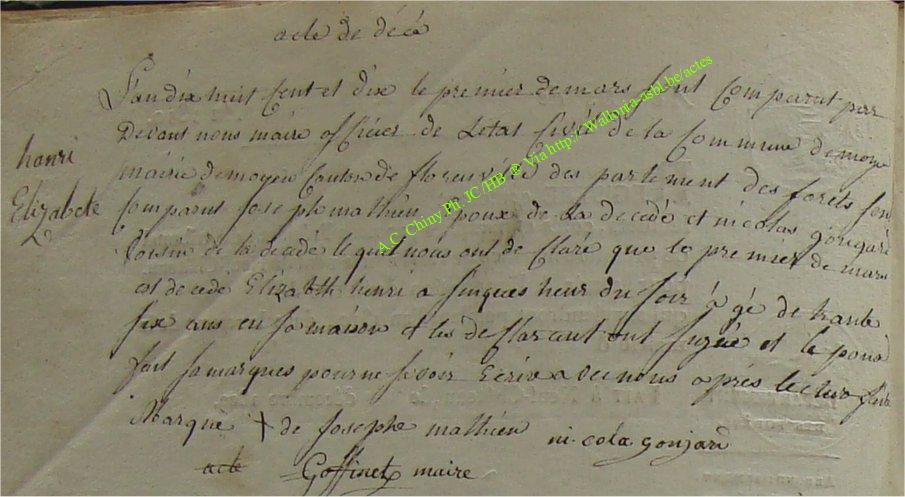 acte de décé
L'an dix huit Cent et dix le premier de mars Sont Comparut par
Devant nous maire officier de Letat Civil de la Commune de moye
hanri
mairie de moyen Canton de florenville des partement des forets son
Elizabete
Comparut Joseph mathieu Epoux de La decedé et nicolas gorigare
Voisin de la decadé le quel nous ont de Claré que le premier de mars
est decedé Elizabth henri a sinques heur du soir a gé de trante
six ans en sa maison et les de Clarant ont signée et le poux
fait sa marques pour ne savoir Ecrire avec nous aprés lecture faite
Marque + de Josephe mathieu
ni cola gonjard
acte
Goffinet maire
A.C. Chiny Ph. JC HB @ Via http://Wallonia-asbl.be/actes